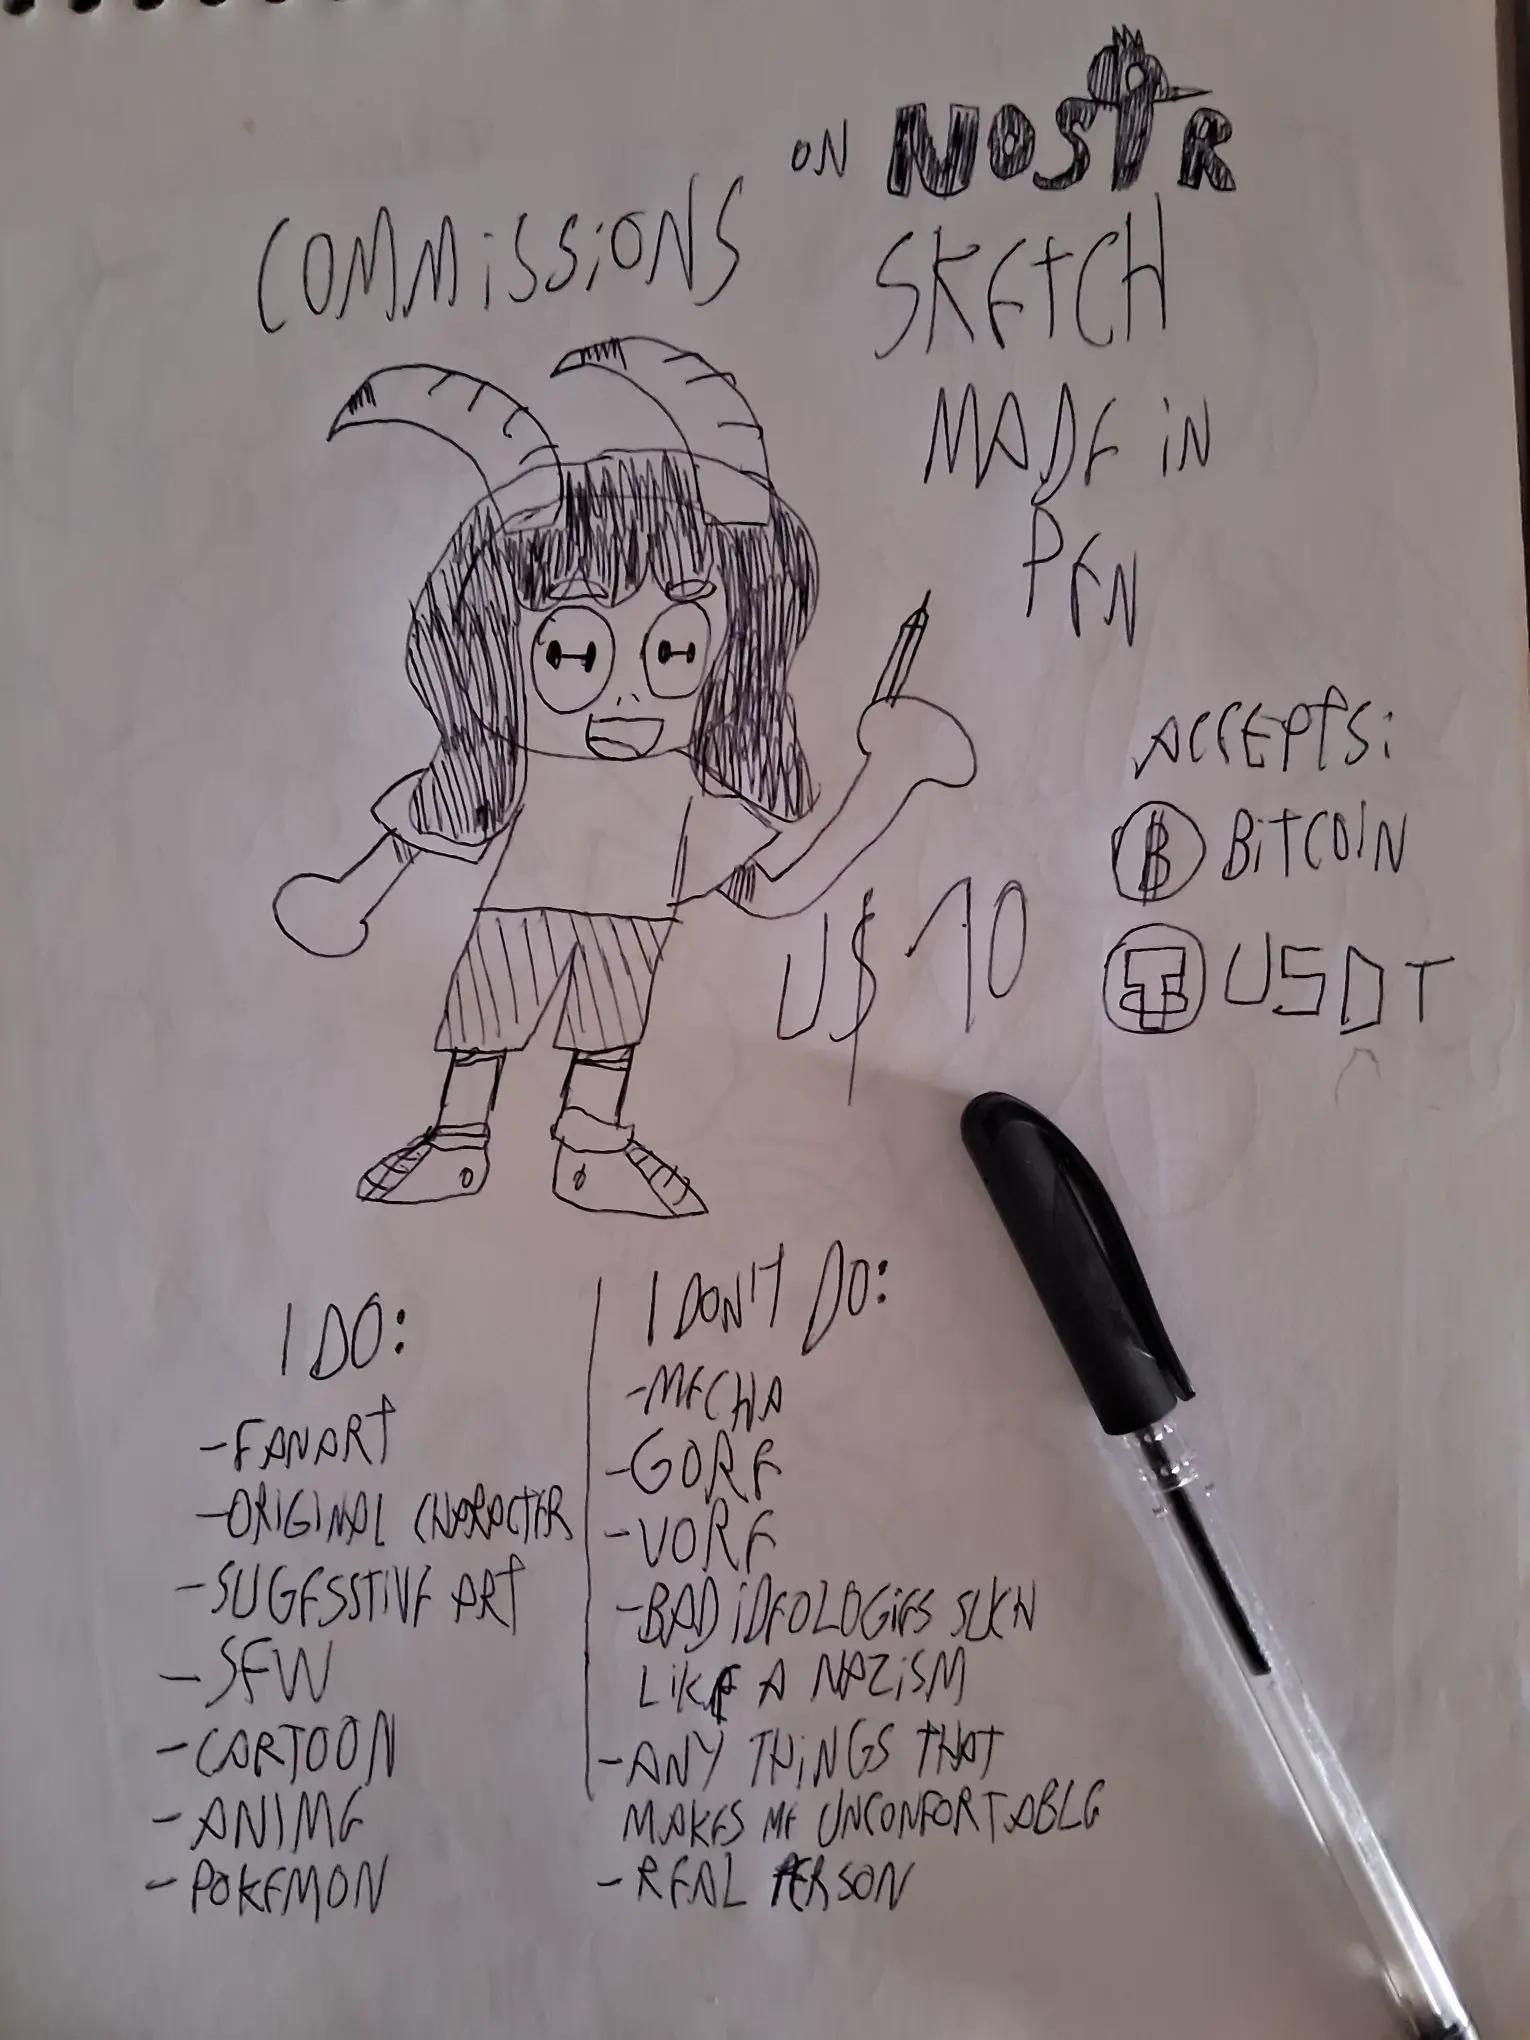 ON NOSTR
COMMISSIONS
SKETCH
MADE IN
PEN
ACCEPTS:
BITCOIN
USDT
U$ 10
I DO:
-FANART
-ORIGINAL CHARACTER
-SUGESSTIVE ART
-SFW
-CARTOON
-ANIME
-POKEMON
I DON'T DO:
-MECHA
-GORE
-VORE
-BAD IDEOLOGIES SUCH
LIKE A NAZISM
-ANY THINGS THAT
MAKES ME UNCONFORTABLE
-REAL PERSON